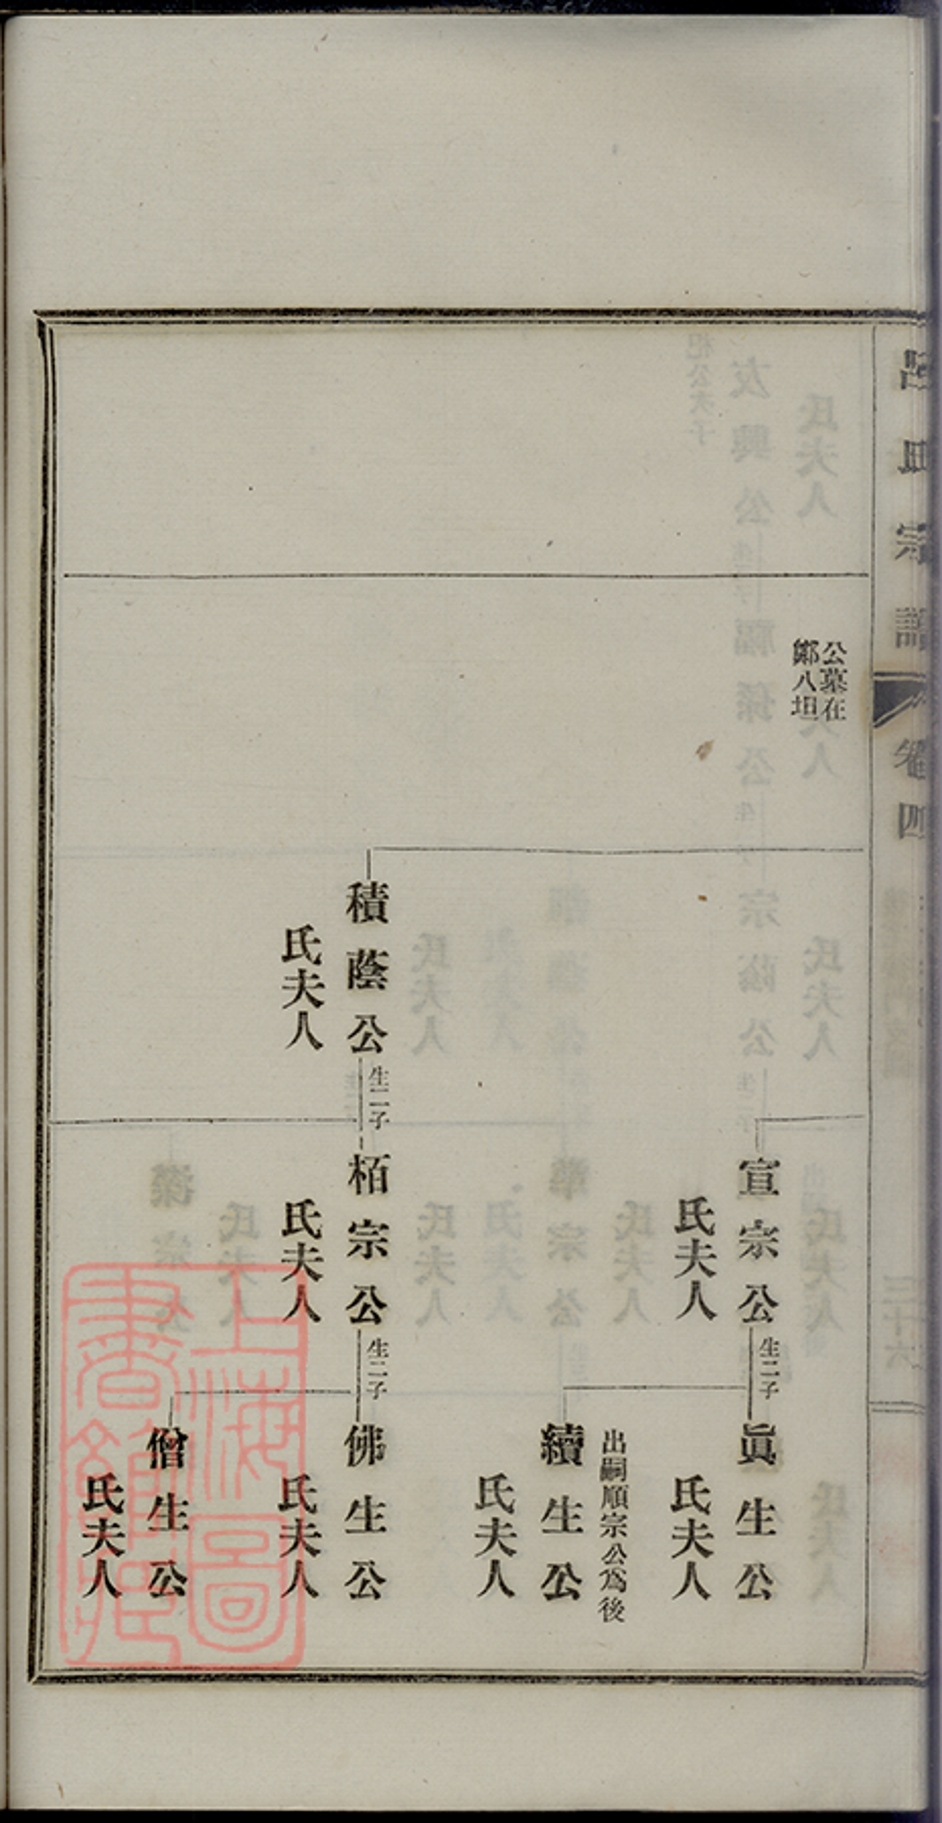 呂氏宗譜
卷四
公墓在
鄭八坦
宣宗公
生二子
氏夫人
眞生公
氏夫人
出嗣順宗公為後
續生公
氏夫人
積蔭公
生二子
氏夫人
栢宗公
生二子
氏夫人
佛生公
氏夫人
僧生公
氏夫人
上海圖
書館藏